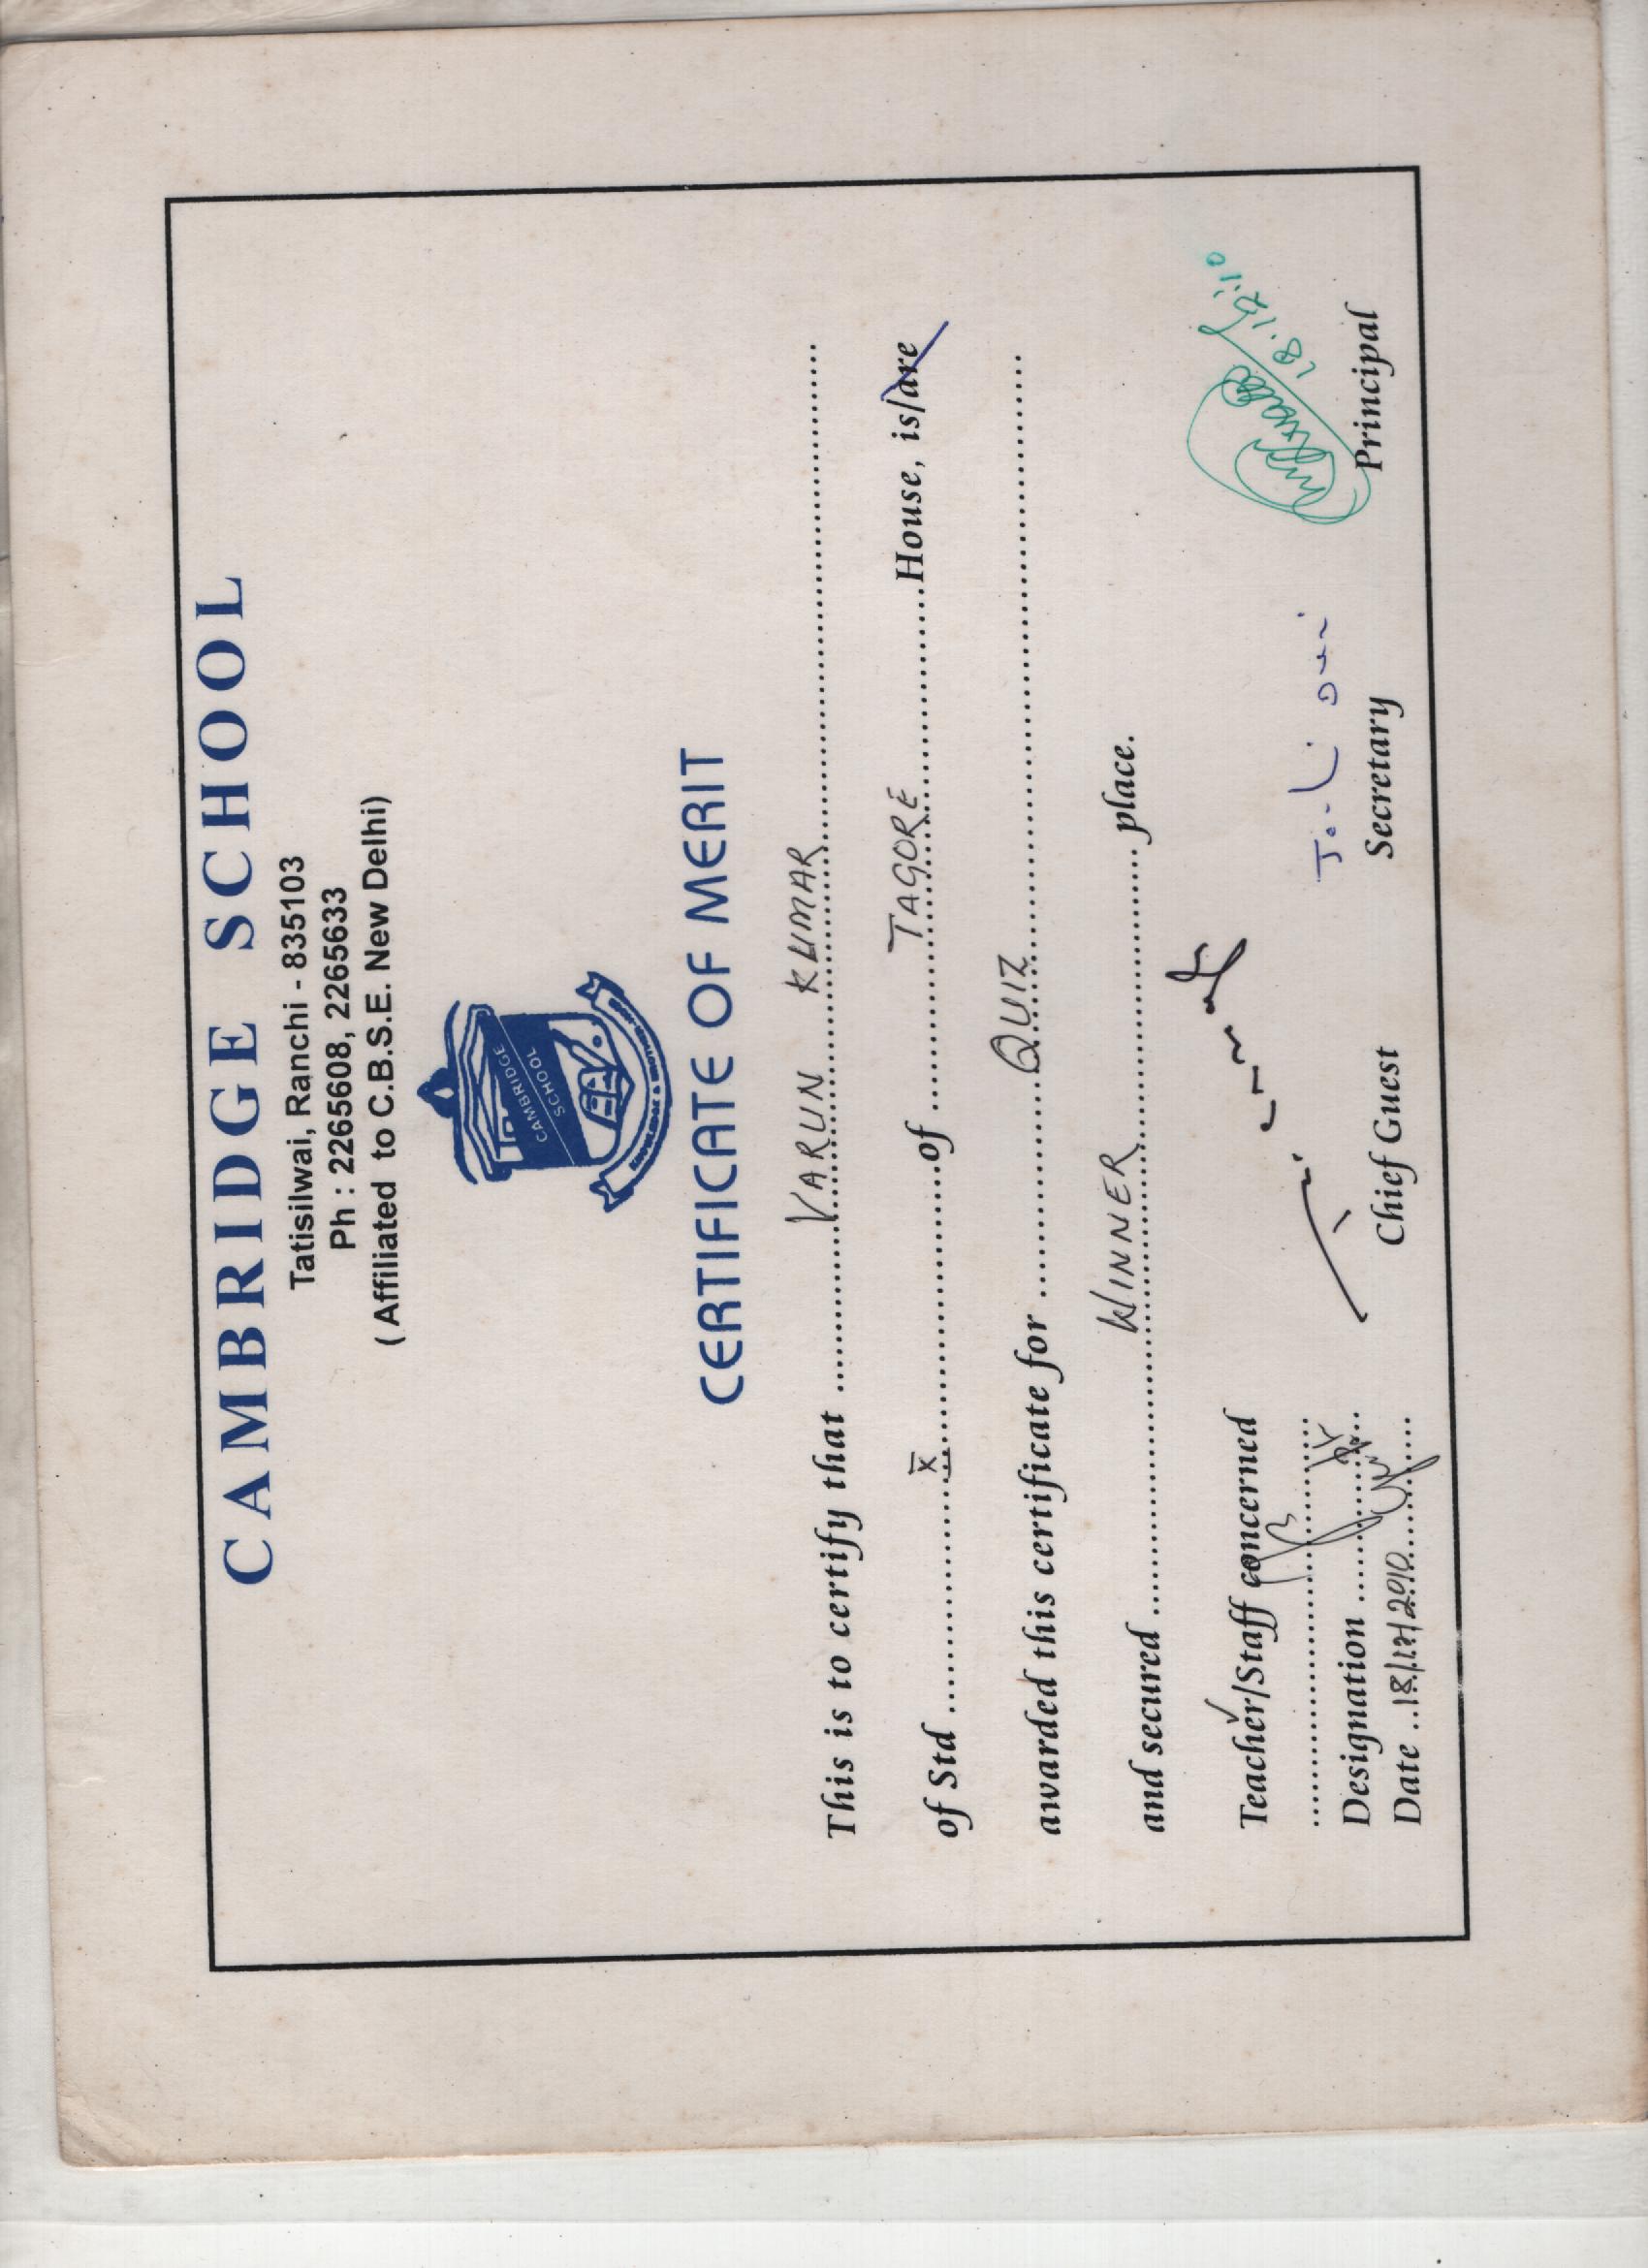 CAMBRIDGE SCHOOL
Tatisilwai, Ranchi - 835103
Ph : 2265608, 2265633
( Affiliated to C.B.S.E. New Delhi)
CAMBRIDGE
SCHOOL
CERTIFICATE OF MERIT
This is to certify that VARUN KUMAR
of Std X of TAGORE House, is/are
awarded this certificate for QUIZ
and secured WINNER place.
Teacher/Staff concerned
Designation
Date 18/12/2010
Chief Guest
Secretary
18.12.10
Principal